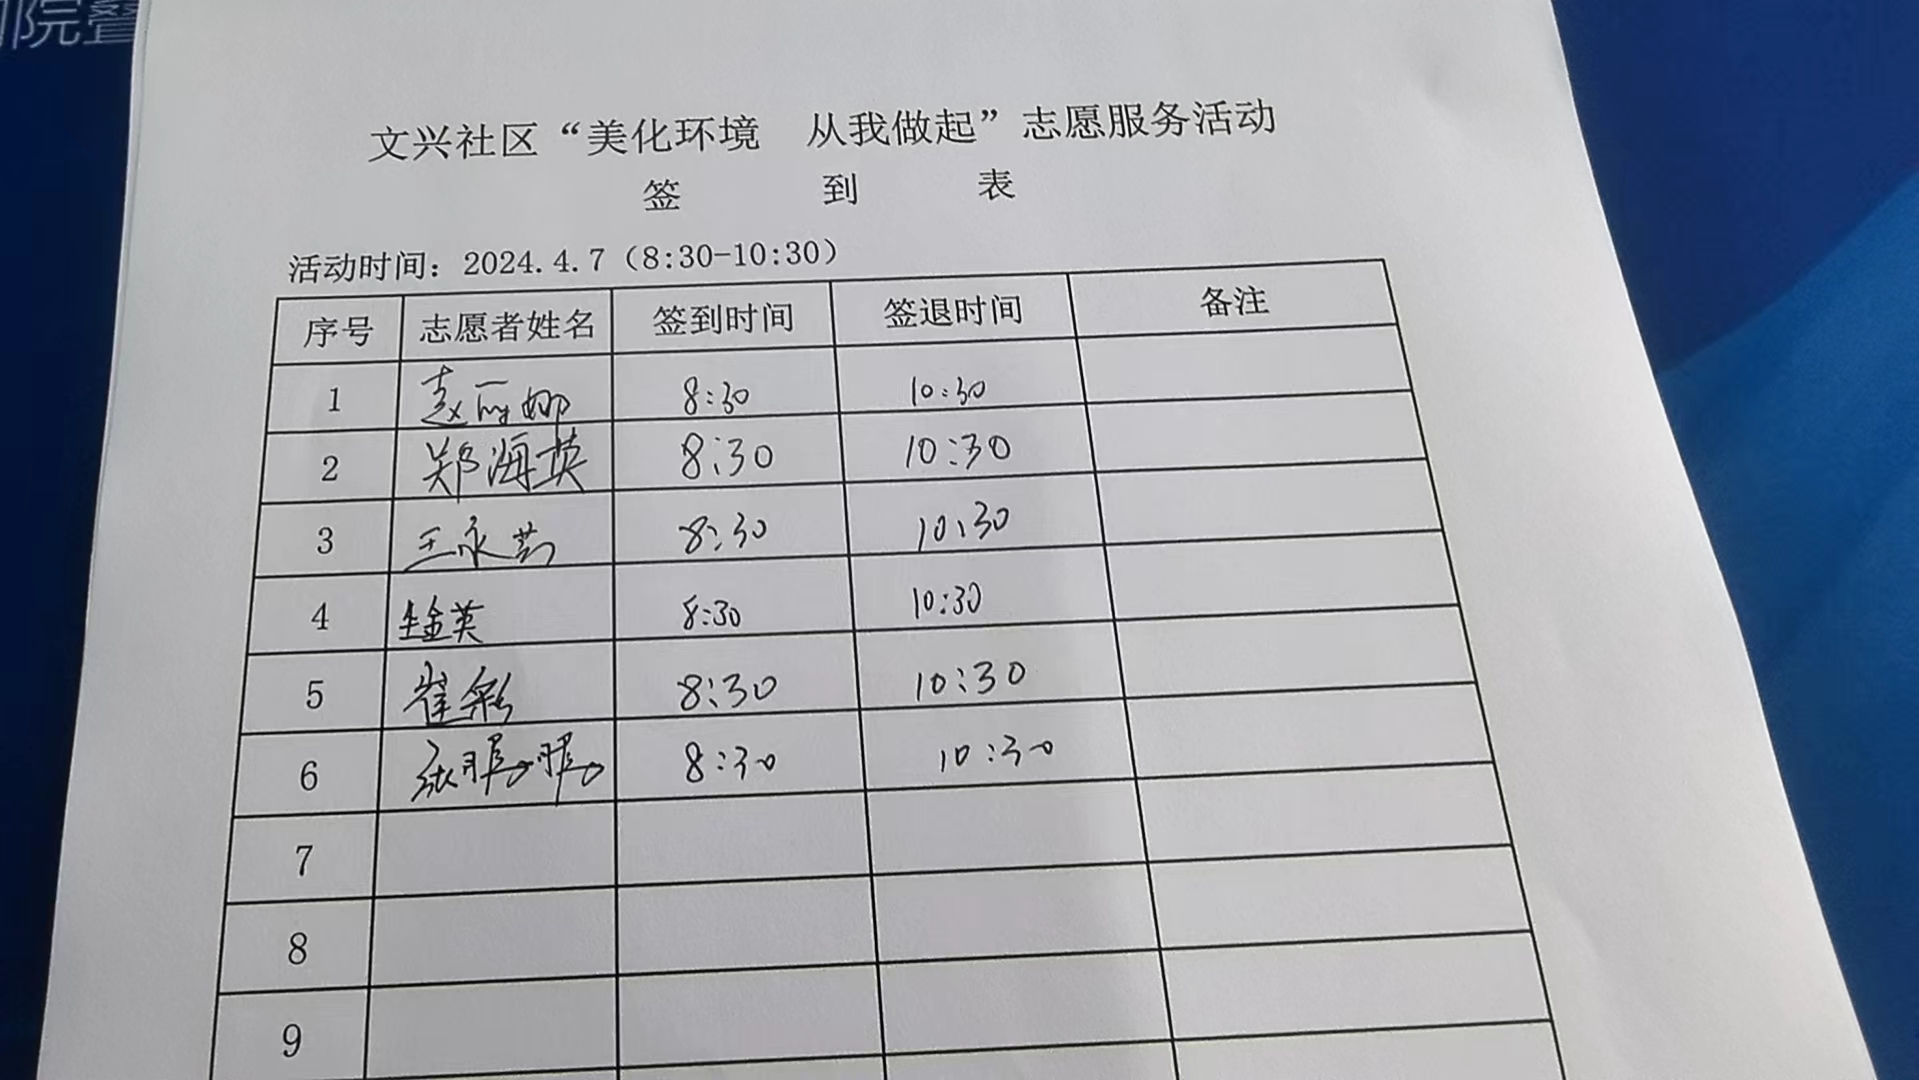 院
文兴社区“美化环境 从我做起”志愿服务活动
签 到 表
活动时间：2024.4.7（8:30-10:30）
序号 志愿者姓名 签到时间 签退时间 备注
1 赵丽娜 8:30 10:30
2 郑海英 8:30 10:30
3 王永 8:30 10:30
4 金英 8:30 10:30
5 崔彩 8:30 10:30
6 张 8:30 10:30
7
8
9